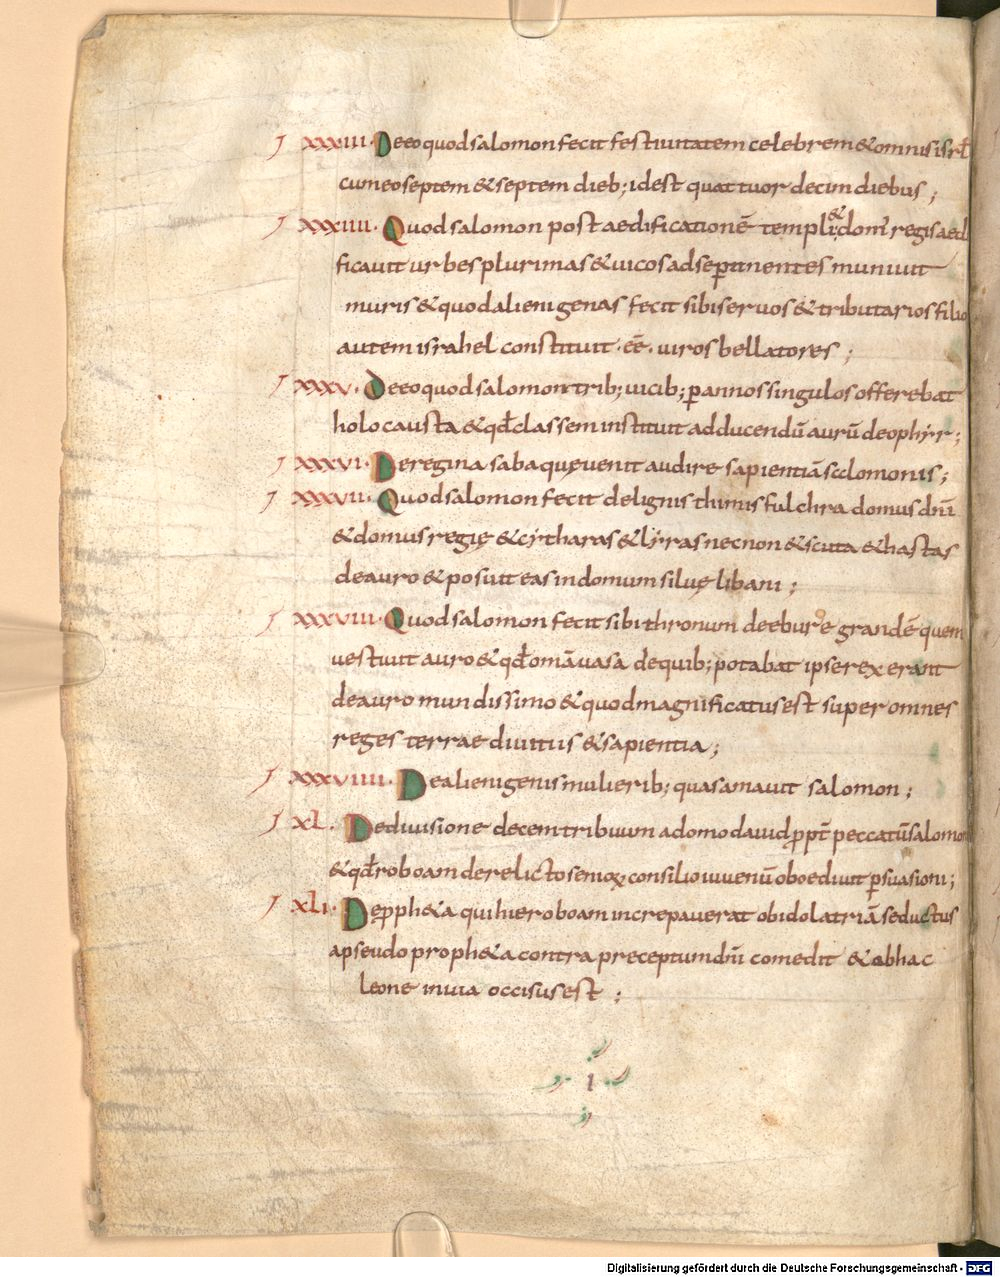 XXXIII. De eo quod salomon fecit festiuitatem celebrem & omnis isrƚ
cum eo septem & septem dieb; id est quattuor decim diebus;
XXXIIII. Quod salomon post aedificationē templi & domꝰ regis aedi
ficauit urbes plurimas & uicos ad se ꝑtinentes muniuit
muris & quod alienigenas fecit sibi seruos & tributarios filios
autem israhel constituit · eē · uiros bellatores;
XXXV. De eo quod salomon trib; uicib; ꝑ annos singulos offerebat
holocausta & qđ classem instituit adducendū aurū de ophyr;
XXXVI. De regina saba quę uenit audire sapientiā salomonis;
XXXVII. Quod salomon fecit de lignis thimis fulchra domus dn̄i
& domus regię & cytharas & lyras necnon & scuta & hastas
de auro & posuit eas in domum siluę libani;
XXXVIII. Quod salomon fecit sibi thronum de ebure grandē quem
uestiuit auro & qđ omā uasa de quib; potabat ipse rex erant
de auro mundissimo & quod magnificatus est super omnes
reges terrae diuitiis & sapientia;
XXXVIIII. De alienigenis mulierib; quas amauit salomon;
XL. De diuisione decem tribuum a domo dauid ꝓpt̄ peccatū salomon
& qđ roboam derelicto senioꝝ consilio iuuenū oboediuit ꝑsuasioni;
XLI. De ꝓph&a qui hieroboam increpauerat ob idolatriā seductus
a pseudo proph&a contra preceptum dn̄i comedit & ob hac
leone in uia occisus est;
Digitalisierung gefördert durch die Deutsche Forschungsgemeinschaft - DFG